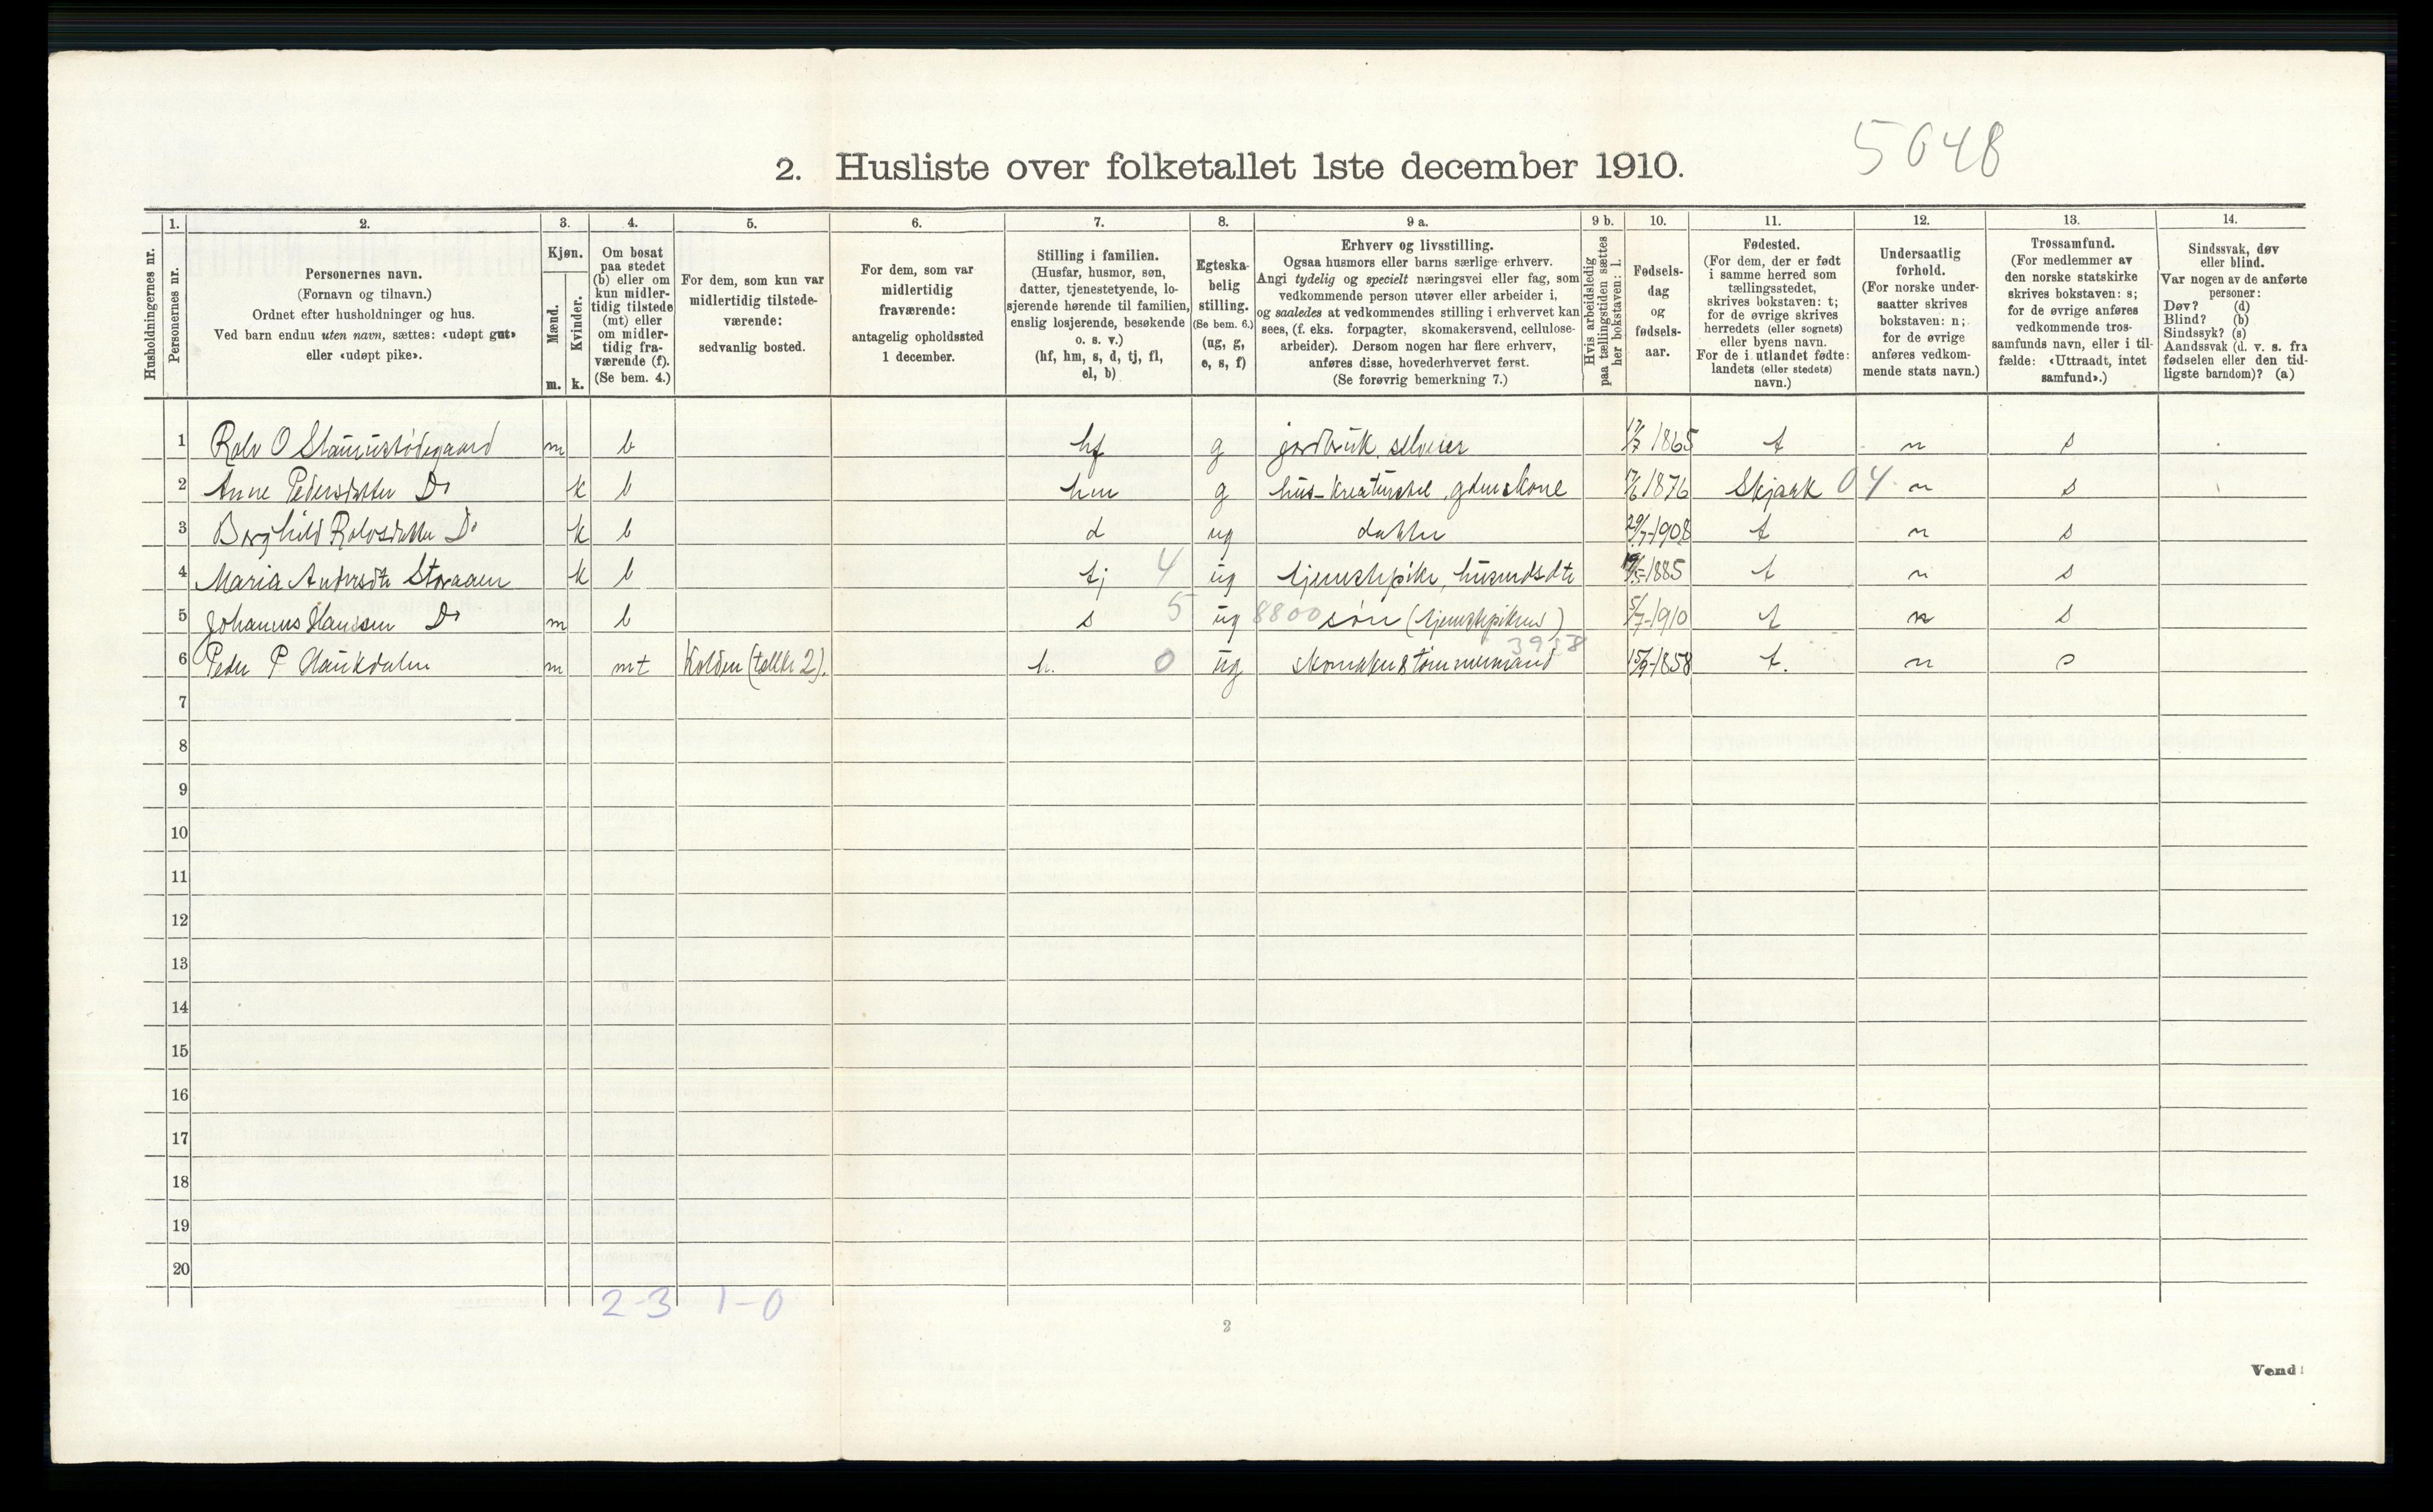 5048
2. Husliste over folketallet 1ste december 1910.
1. 2. 3. 4. 5. 6. 7. 8. 9 a. 9 b. 10. 11. 12. 13. 14.
Husholdningernes nr.
Personernes nr.
Personernes navn.
(Fornavn og tilnavn.)
Ordnet efter husholdninger og hus.
Ved barn endnu uten navn, sættes: «udøpt gut»
eller «udøpt pike».
Kjøn.
Mænd.
Kvinder.
m. k.
Om bosat
paa stedet
(b) eller om
kun midler-
tidig tilstede
(mt) eller
om midler-
tidig fra-
værende (f).
(Se bem. 4.)
For dem, som kun var
midlertidig tilstede-
værende:
sedvanlig bosted.
For dem, som var
midlertidig
fraværende:
antagelig opholdssted
1 december.
Stilling i familien.
(Husfar, husmor, søn,
datter, tjenestetyende, lo-
sjerende hørende til familien,
enslig losjerende, besøkende
o. s. v.)
(hf, hm, s, d, tj, fl,
el, b)
Egteska-
belig
stilling.
(Se bem. 6.)
(ug, g,
e, s, f)
Erhverv og livsstilling.
Ogsaa husmors eller barns særlige erhverv.
Angi tydelig og specielt næringsvei eller fag, som
vedkommende person utøver eller arbeider i,
og saaledes at vedkommendes stilling i erhvervet kan
sees, (f. eks. forpagter, skomakersvend, cellulose-
arbeider). Dersom nogen har flere erhverv,
anføres disse, hovederhvervet først.
(Se forøvrig bemerkning 7.)
Hvis arbeidsledig
paa tællingstiden sættes
her bokstaven: l.
Fødsels-
dag
og
fødsels-
aar.
Fødested.
(For dem, der er født
i samme herred som
tællingsstedet,
skrives bokstaven: t;
for de øvrige skrives
herredets (eller sognets)
eller byens navn.
For de i utlandet fødte:
landets (eller stedets)
navn.)
Undersaatlig
forhold.
(For norske under-
saatter skrives
bokstaven: n;
for de øvrige
anføres vedkom-
mende stats navn.)
Trossamfund.
(For medlemmer av
den norske statskirke
skrives bokstaven: s;
for de øvrige anføres
vedkommende tros-
samfunds navn, eller i til-
fælde: «Uttraadt, intet
samfund».)
Sindssvak, døv
eller blind.
Var nogen av de anførte
personer:
Døv? (d)
Blind? (b)
Sindssyk? (s)
Aandssvak (d. v. s. fra
fødselen eller den tid-
ligste barndom)? (a)
1 Rolv O m b hf g jordbruk, selveier 1865 t n s
2 Anne Pedersdatter Do k b hm g hus- kreaturstel, gdmskone 1876 Skjaak 04 n s
3 Borghild Rolvsdatter Do k b d ug datter 1908 t n s
4 Maria Andersdtr Storaaen k b tj 4 ug tjenestepike, husmdsdtr 1885 t n s
5 Johannes Hansen Do m b s 5 ug 8800 søn (tjenestepikens) 5/7-1910 t n s
6 Peder P Haukdalen m mt Kolden (tællkr 2). b. 0 ug skomaker & tømmermand 1858 t. n s
7
8
9
10
11
12
13
14
15
16
17
18
19
20
2-3 1-0
2
Vend!